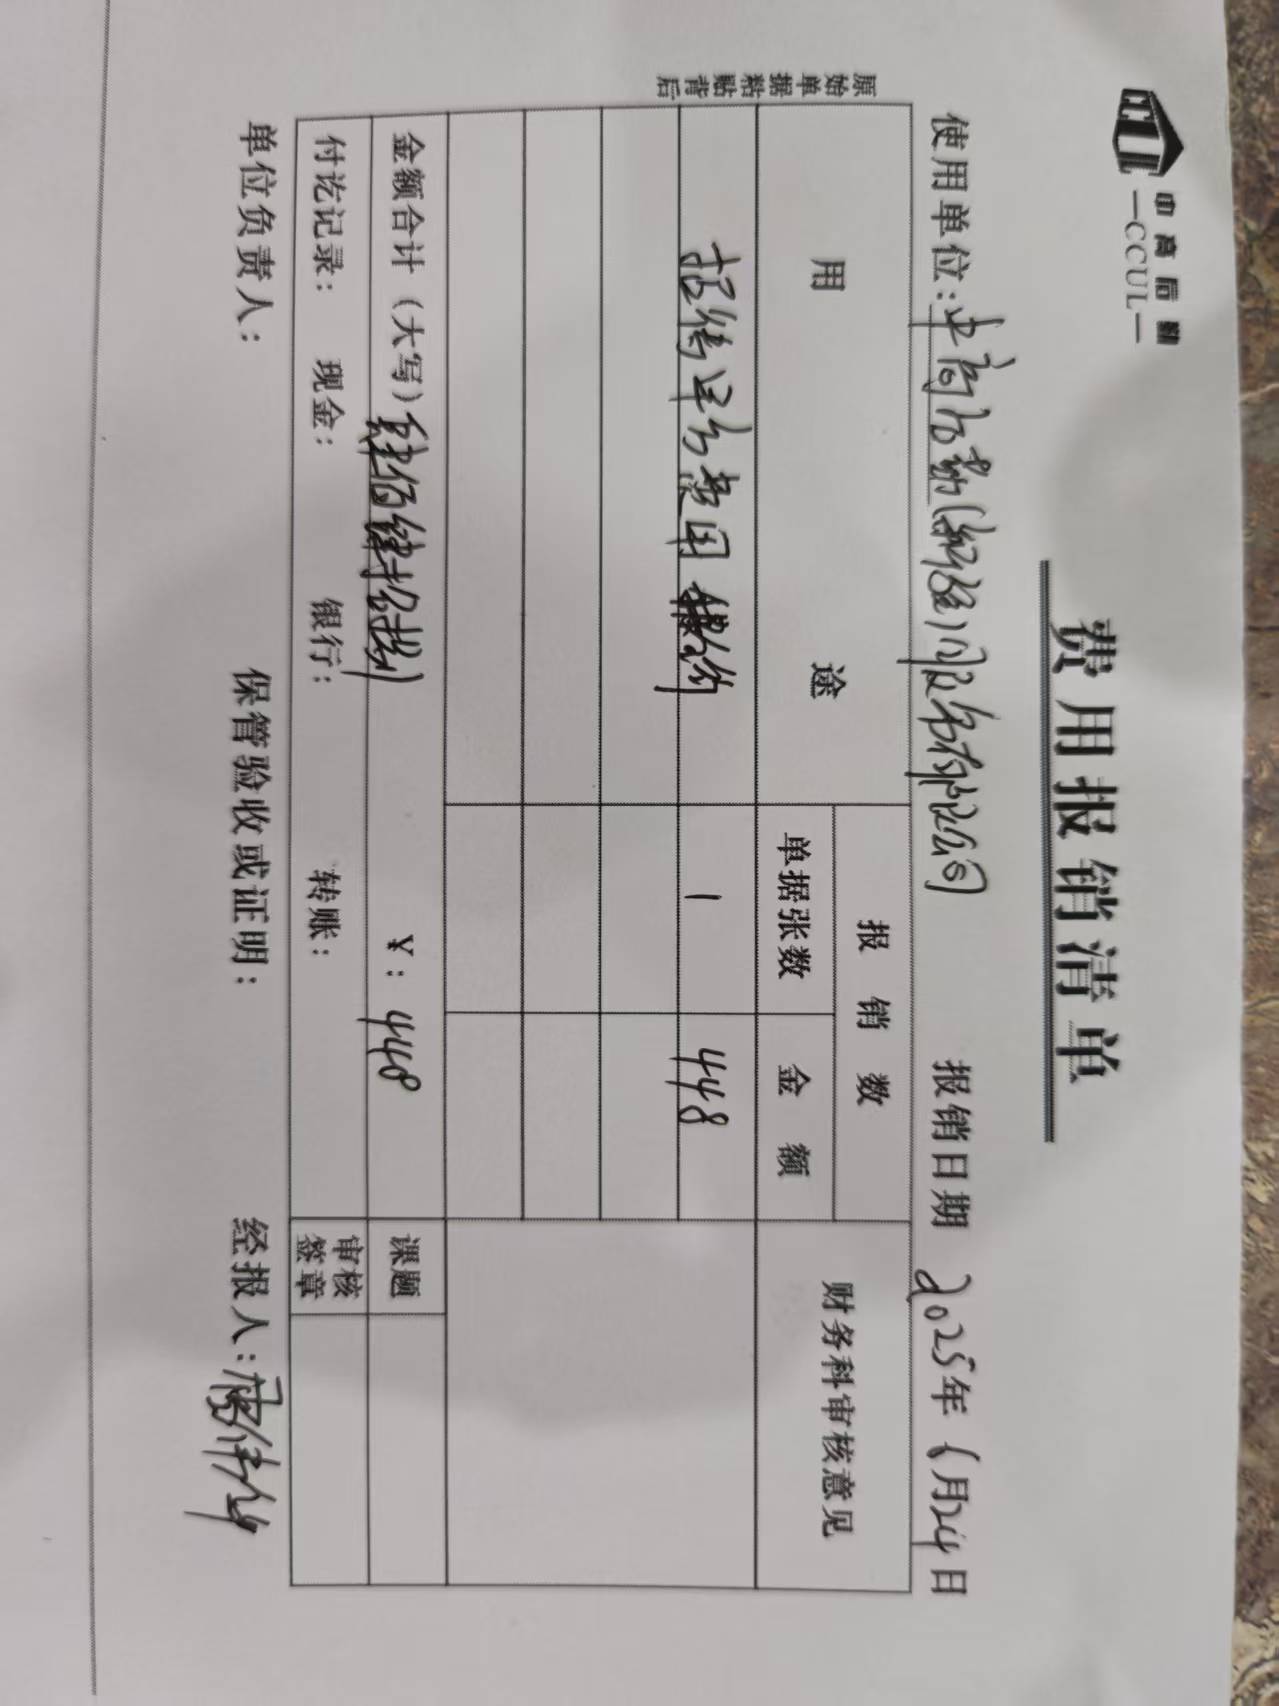 中高后勤
—CCUL—
费用报销清单
使用单位：中高后勤（新疆）服务有限公司 报销日期 2025年6月24日
原始单据粘贴背后
用途 报销数 财务科审核意见
单据张数 金额
招待牟台费用 1 448
金额合计（大写）肆佰肆拾捌 ¥：448 课题
付讫记录： 现金： 银行： 转账： 审核签章
单位负责人： 保管验收或证明： 经报人：